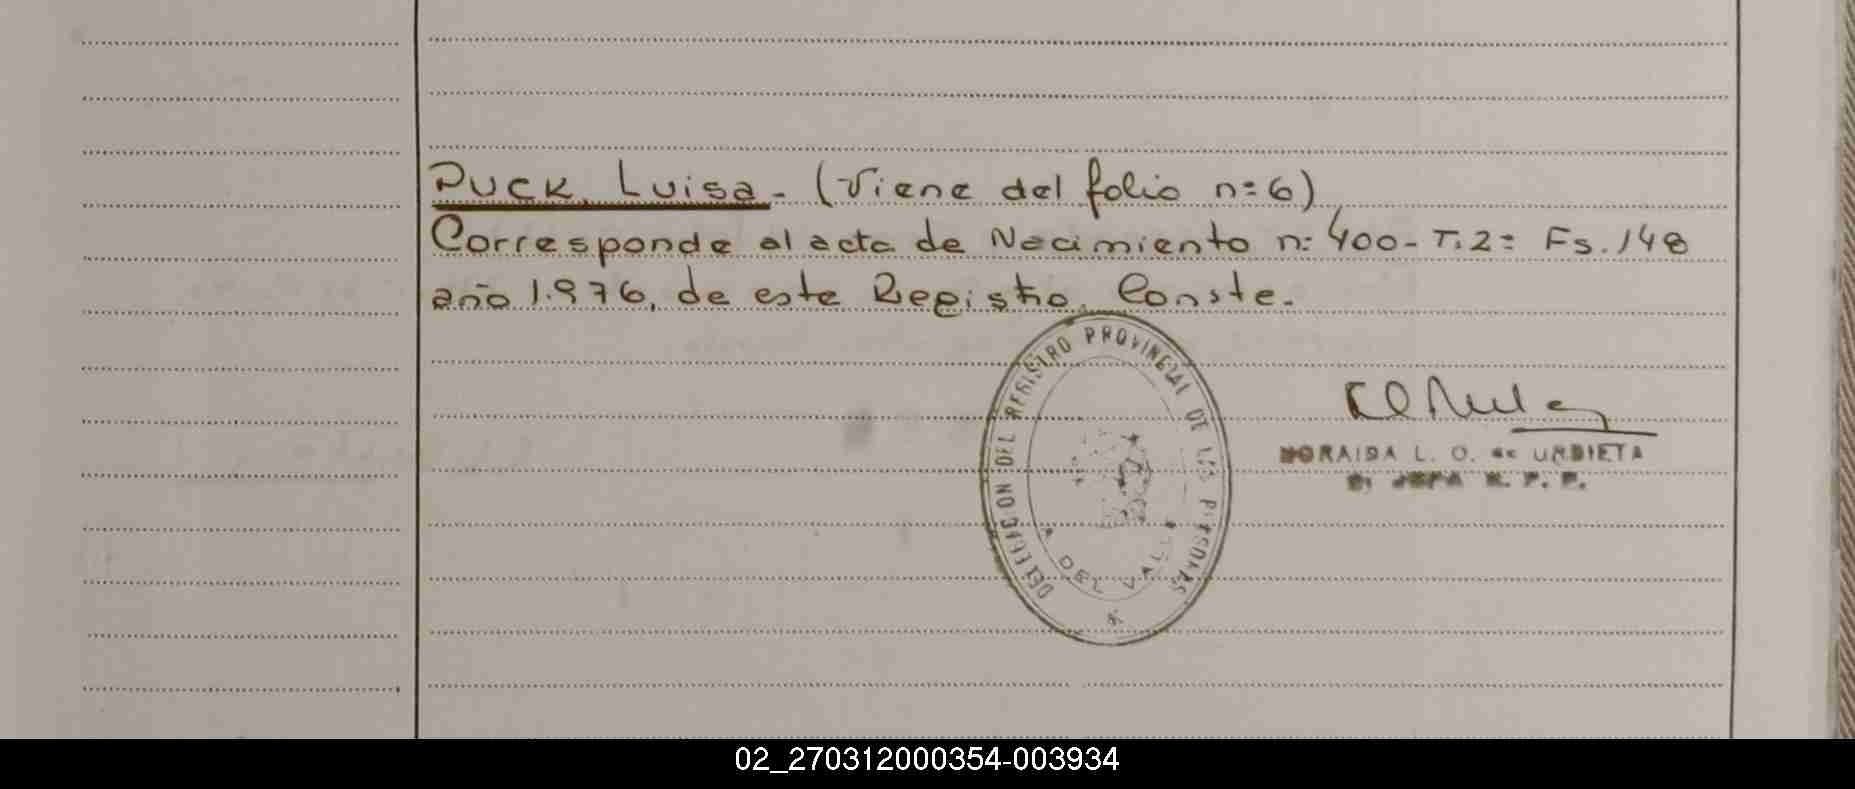 PUCK, Luisa - (Viene del folio n=6)
Corresponde al acta de Nacimiento n: 400 - T: 2= Fs. 148
año 1.976, de este Registro. Conste.
DELEGACION DEL REGISTRO PROVINCIAL DE LAS PERSONAS
DEL VALLE
NORAIDA L. O. de URBIETA
JEFA R. P. P.
02_270312000354-003934